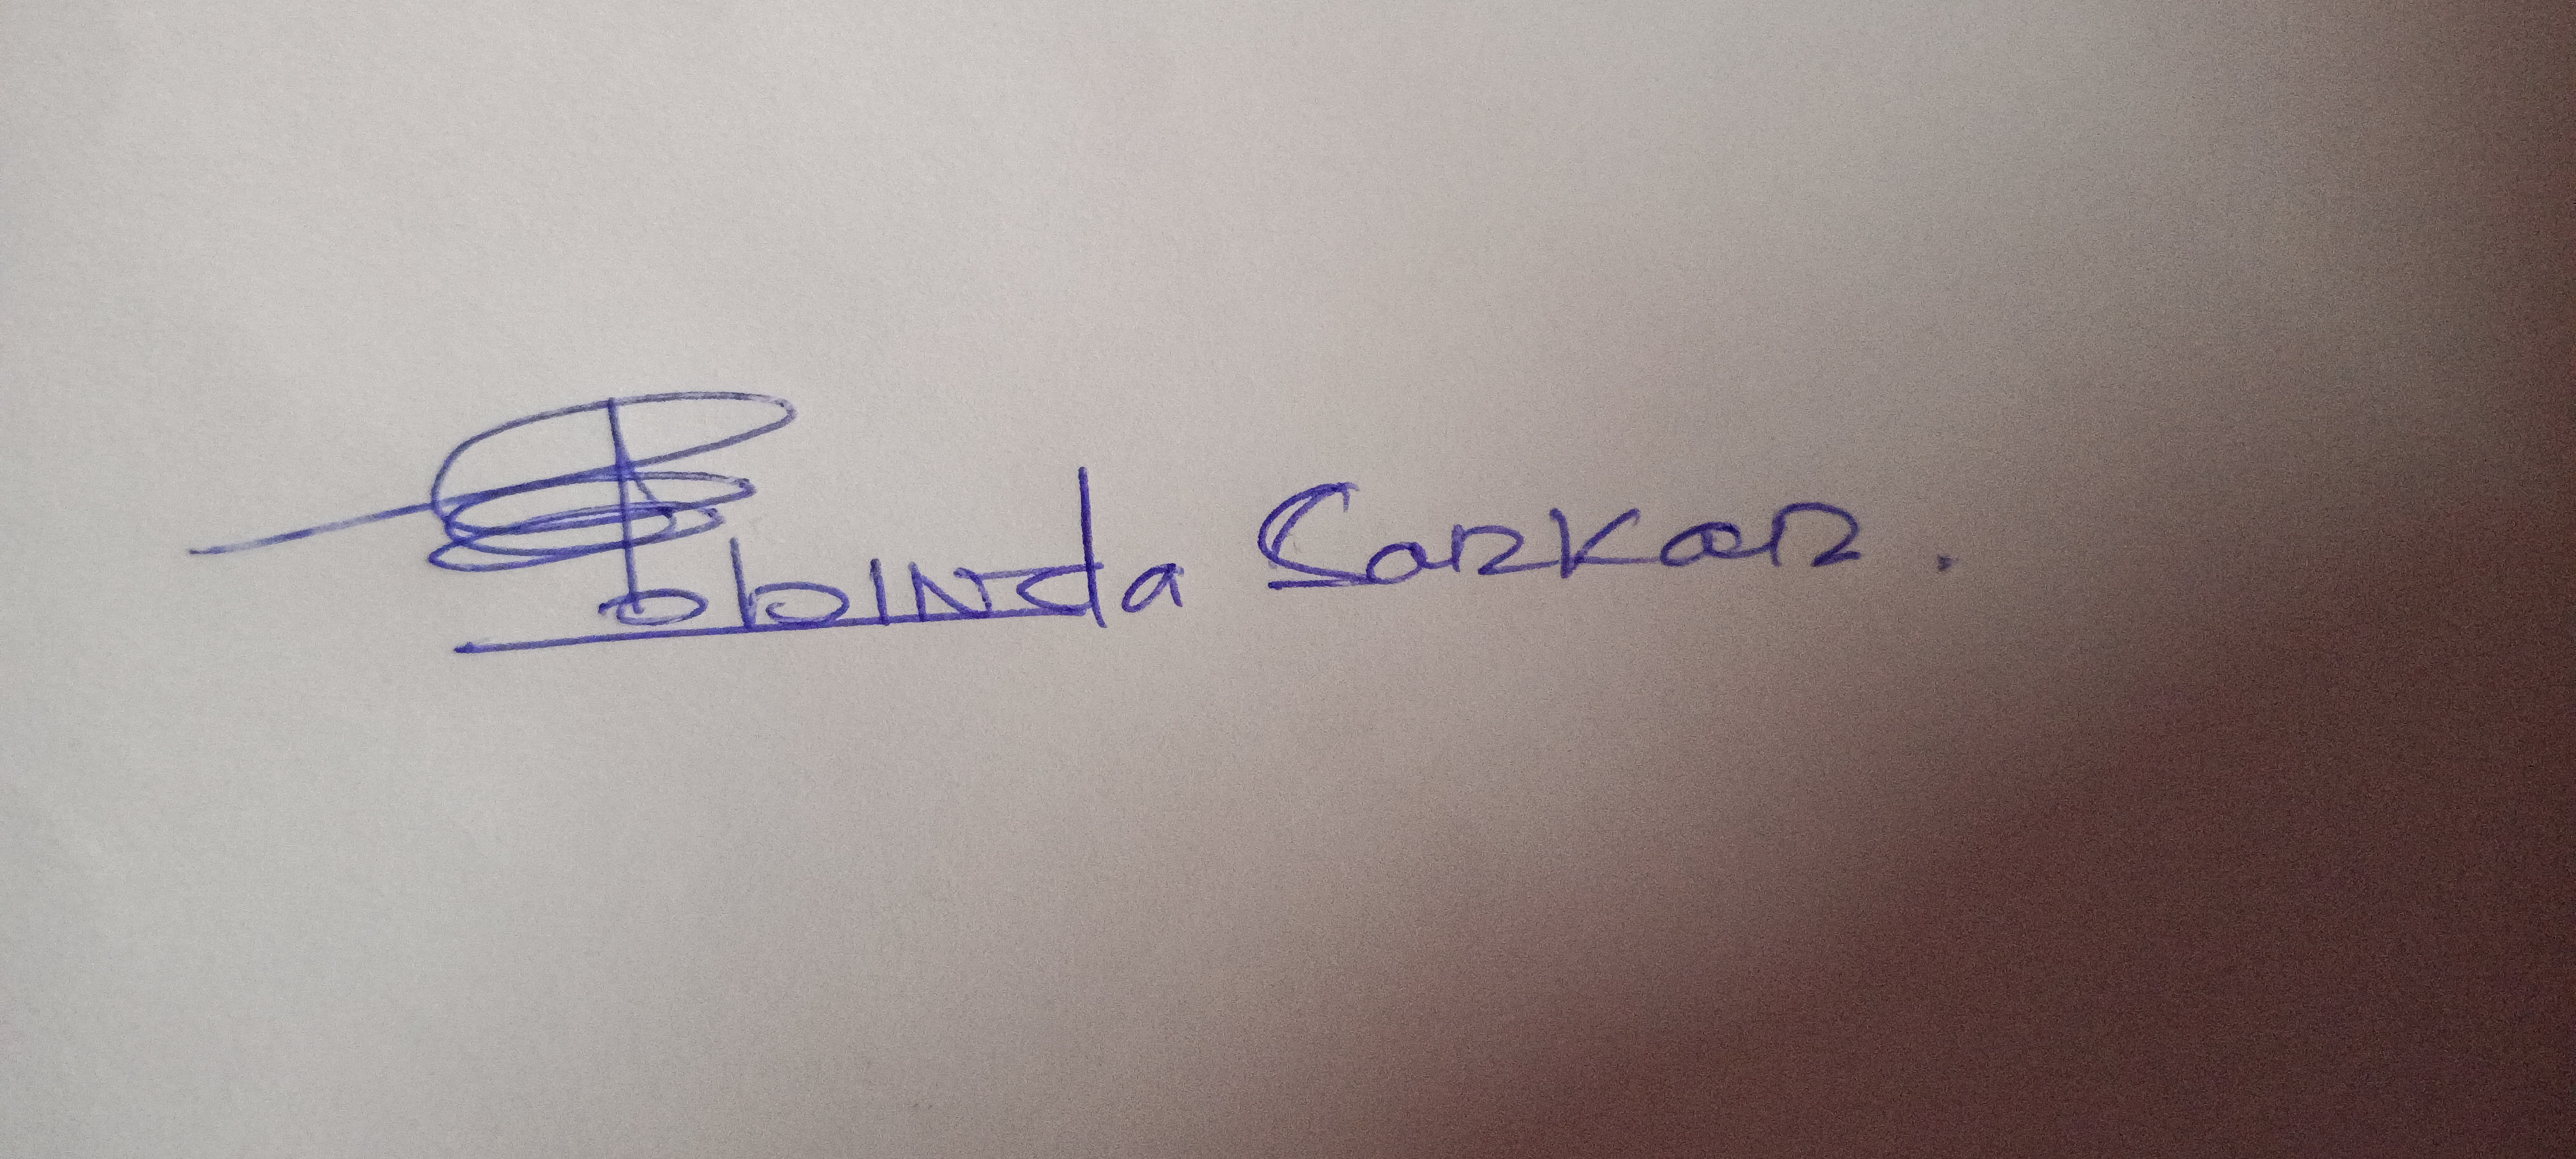 Gobinda Sarkar.